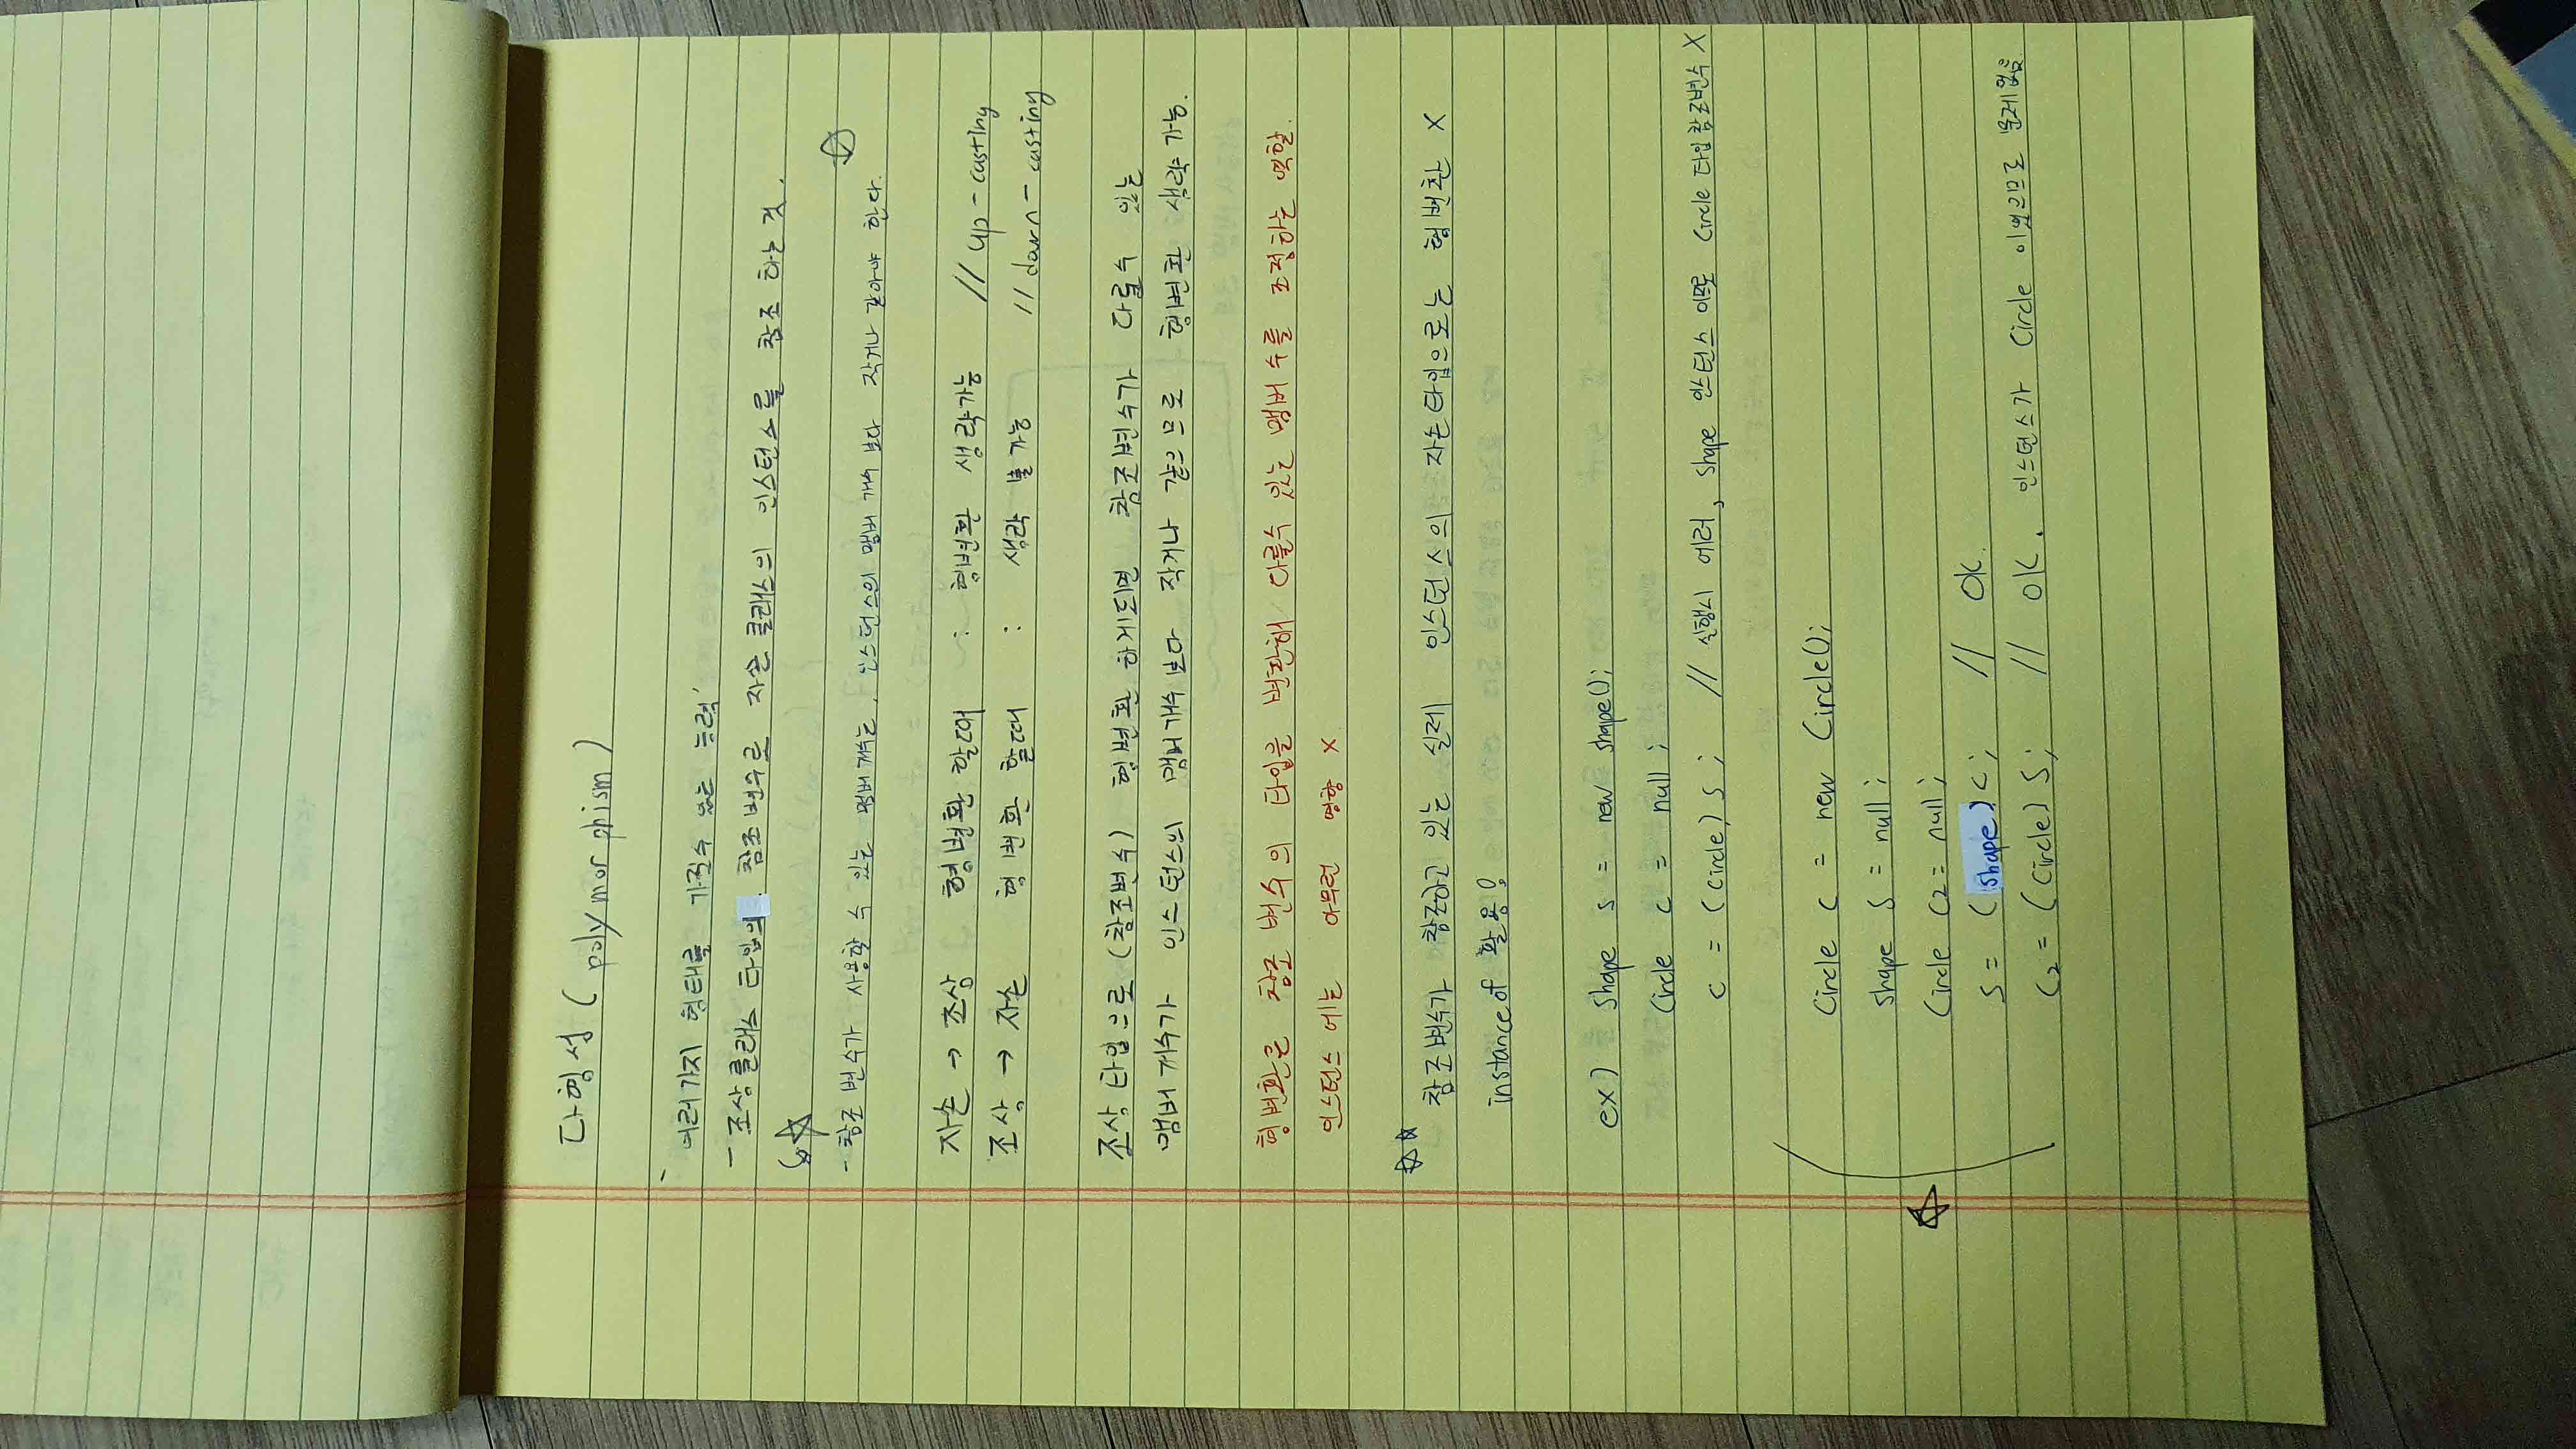 다형성 (polymorphism)
'여러가지 형태를 가질수 있는 능력'
- 조상클래스 타입의 참조변수로 자손클래스의 인스턴스를 참조 하는것.
☆
- 참조변수가 사용할 수 있는 맴버 개수는, 인스턴스의 맴버 개수 보다 작거나 같아야 한다. ☆
자손 → 조상 형변환 할때 : 형변환 생략가능 // up-casting
조상 → 자손 형변환 할때 : 생략 불가능 // down-casting
조상타입으로 (참조변수) 형변환 하게되면 참조변수가 다룰수 있는
맴버 개수가 인스턴스의 맴버개수 보다 작거나 같으므로 형변환 생략 가능.
형변환은 참조 변수의 타입을 변환해 다룰수 있는 맴버 수를 조정하는 역할.
인스턴스 에는 아무런 영향 X.
☆☆
참조변수가 참조하고 있는 실제 인스턴스의 자손타입으로는 형변환 X
instanceof 활용!
ex) shape s = new shape();
Circle c = null;
c = (circle) s; // 실행시 에러, shape 인스턴스 이므로 Circle 타입참조변수 X
Circle c = new Circle();
shape s = null;
☆ Circle c2 = null;
s = (shape) c; // ok.
c2 = (circle) s; // ok. 인스턴스가 Circle 이였으므로 문제없음